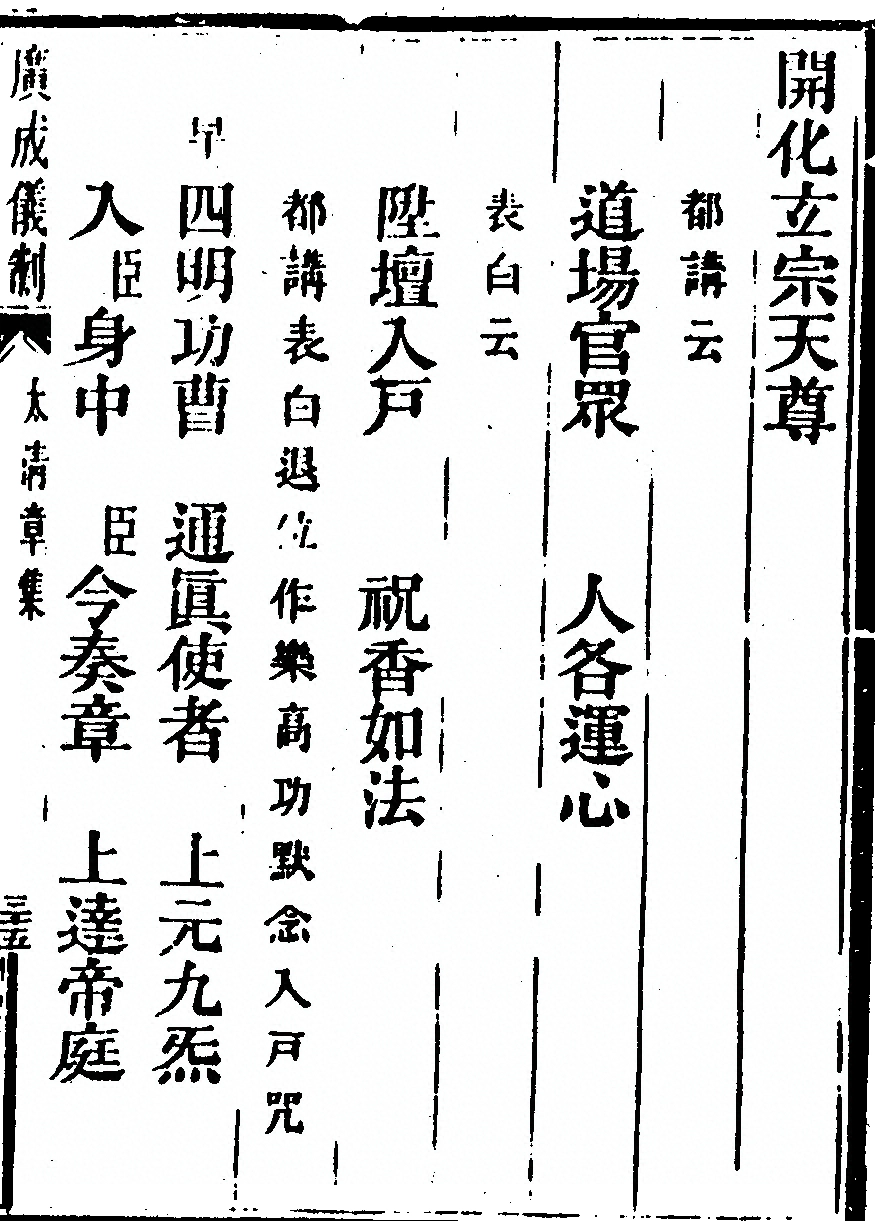 開化立宗天尊
都講云
道場官眾 人各運心
表白云
陞壇入戶 祝香如法
都講表白退位作樂高功默念入戶咒
早 四明功曹 通眞使者 上元九炁
入臣身中 臣今奏章 上達帝庭
廣成儀制 太清章集 三十五